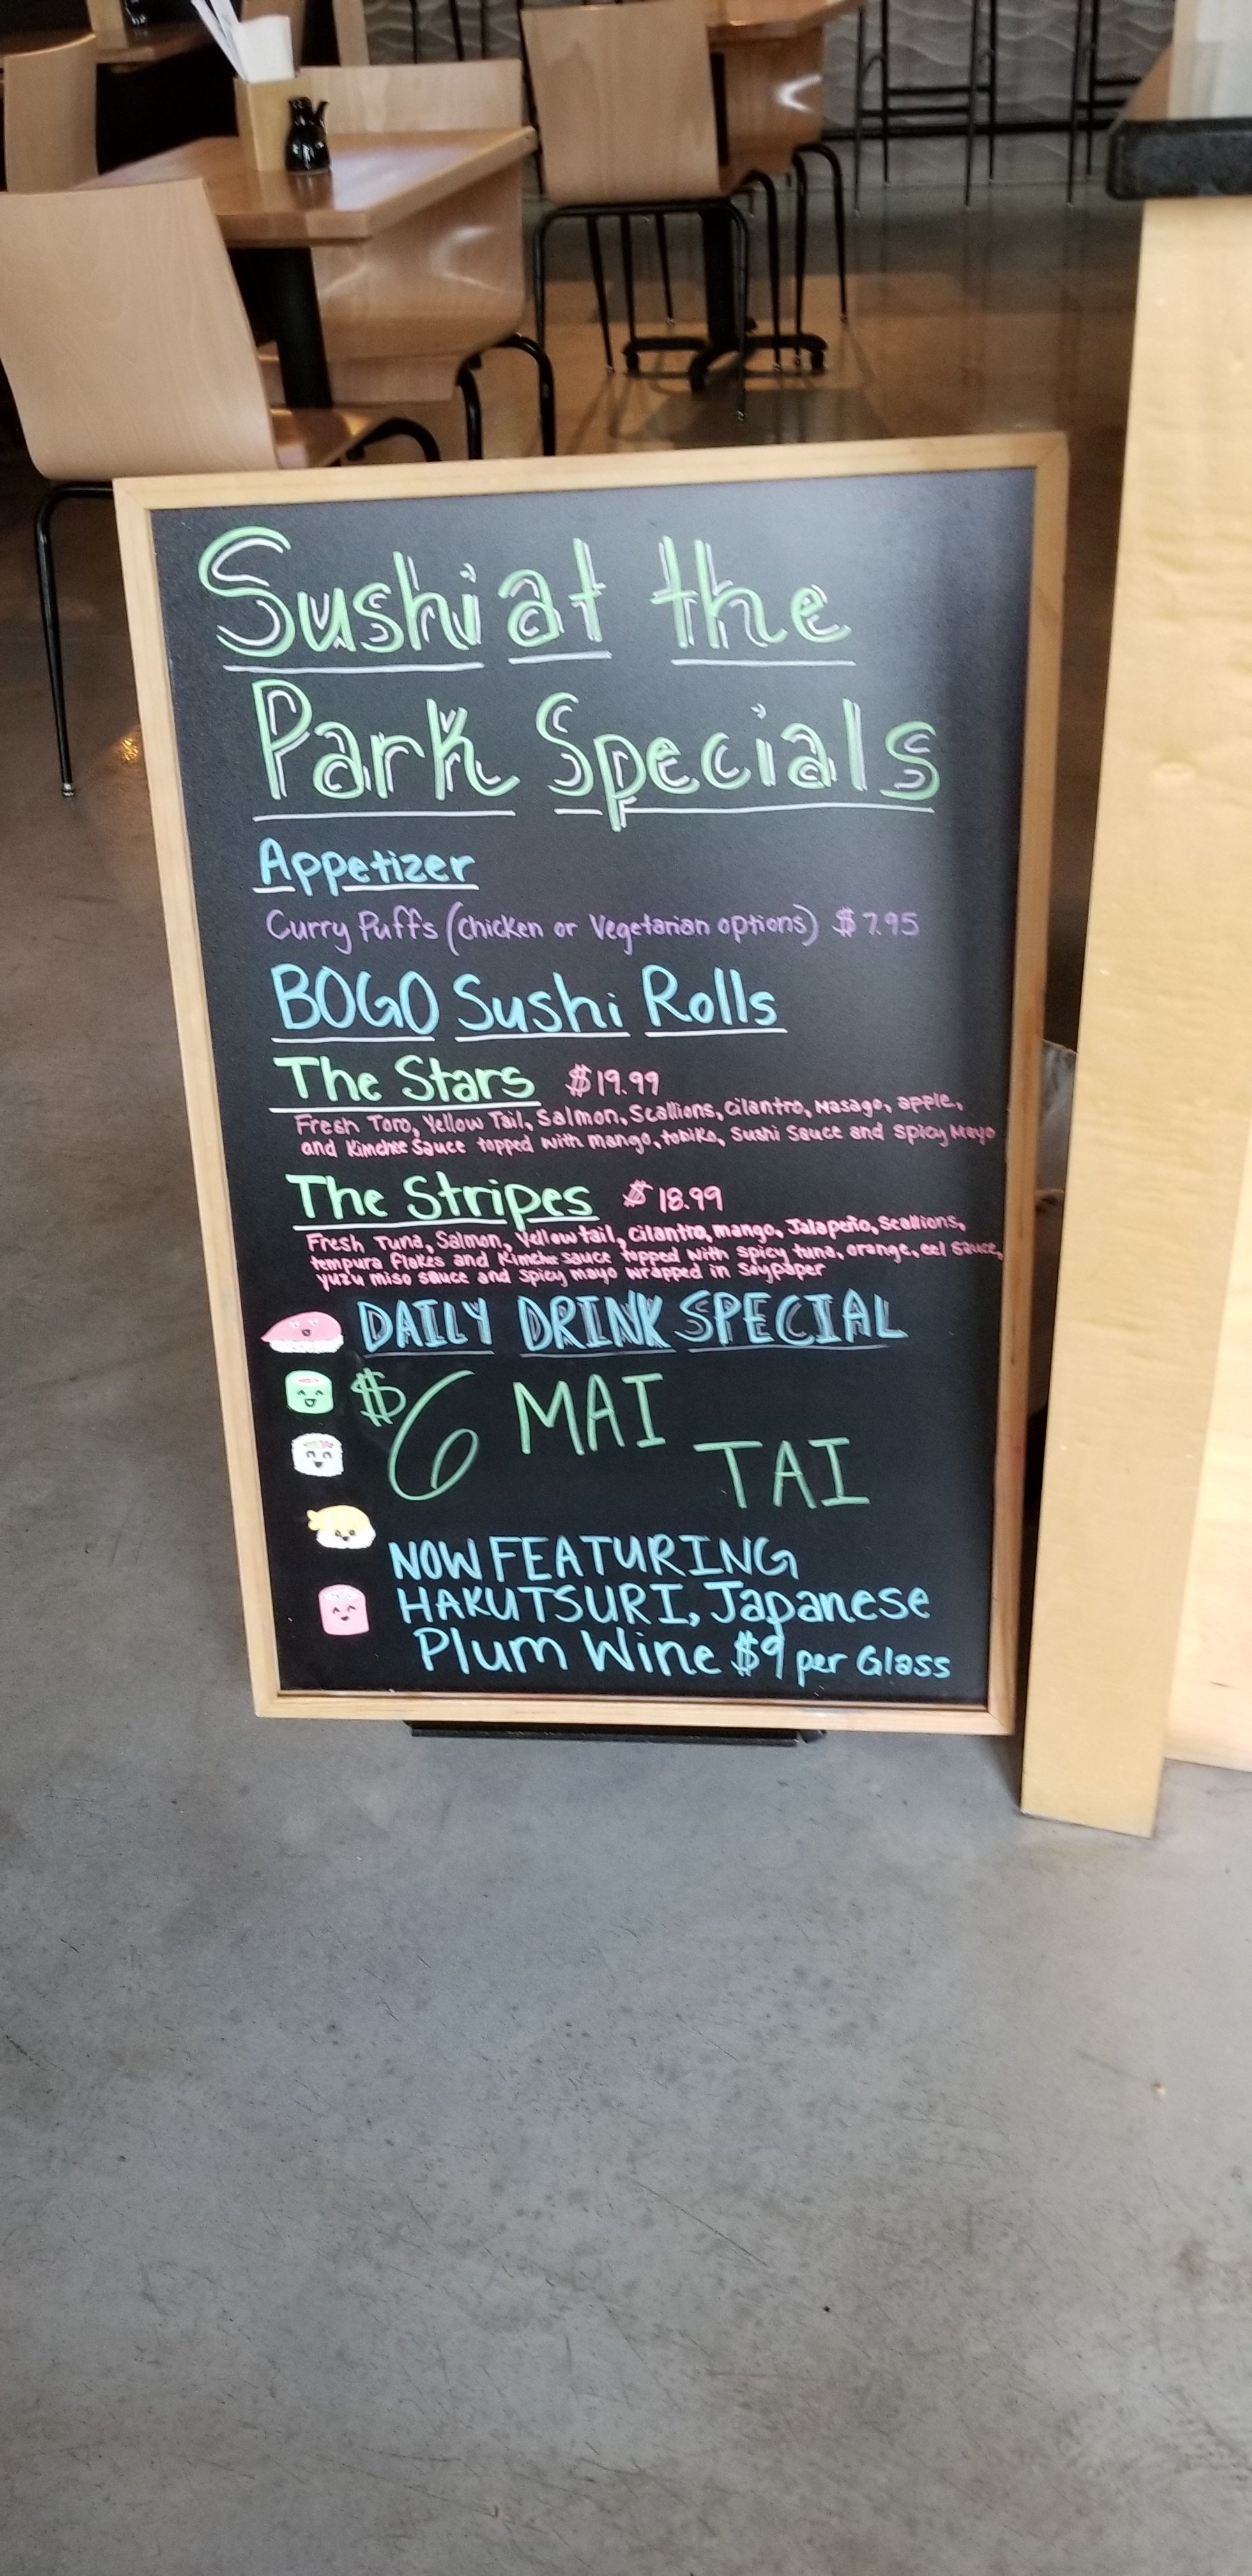 Sushi at the
Park Specials
Appetizer
Curry Puffs (Chicken or Vegetarian options) $7.95
BOGO Sushi Rolls
The Stars $19.99
Fresh Toro, Yellow Tail, Salmon, Scallions, Cilantro, Masago, apple,
and Kimchee Sauce topped with mango, tobiko, Sushi Sauce and Spicy Mayo
The Stripes $18.99
Fresh Tuna, Salmon, Yellow tail, Cilantro, mango, Jalapeño, Scallions,
tempura flakes and Kimche sauce topped with spicy tuna, orange, eel sauce,
yuzu miso sauce and spicy mayo wrapped in Soypaper
DAILY DRINK SPECIAL
$6 MAI
TAI
NOW FEATURING
HAKUTSURI, Japanese
Plum Wine $9 per Glass